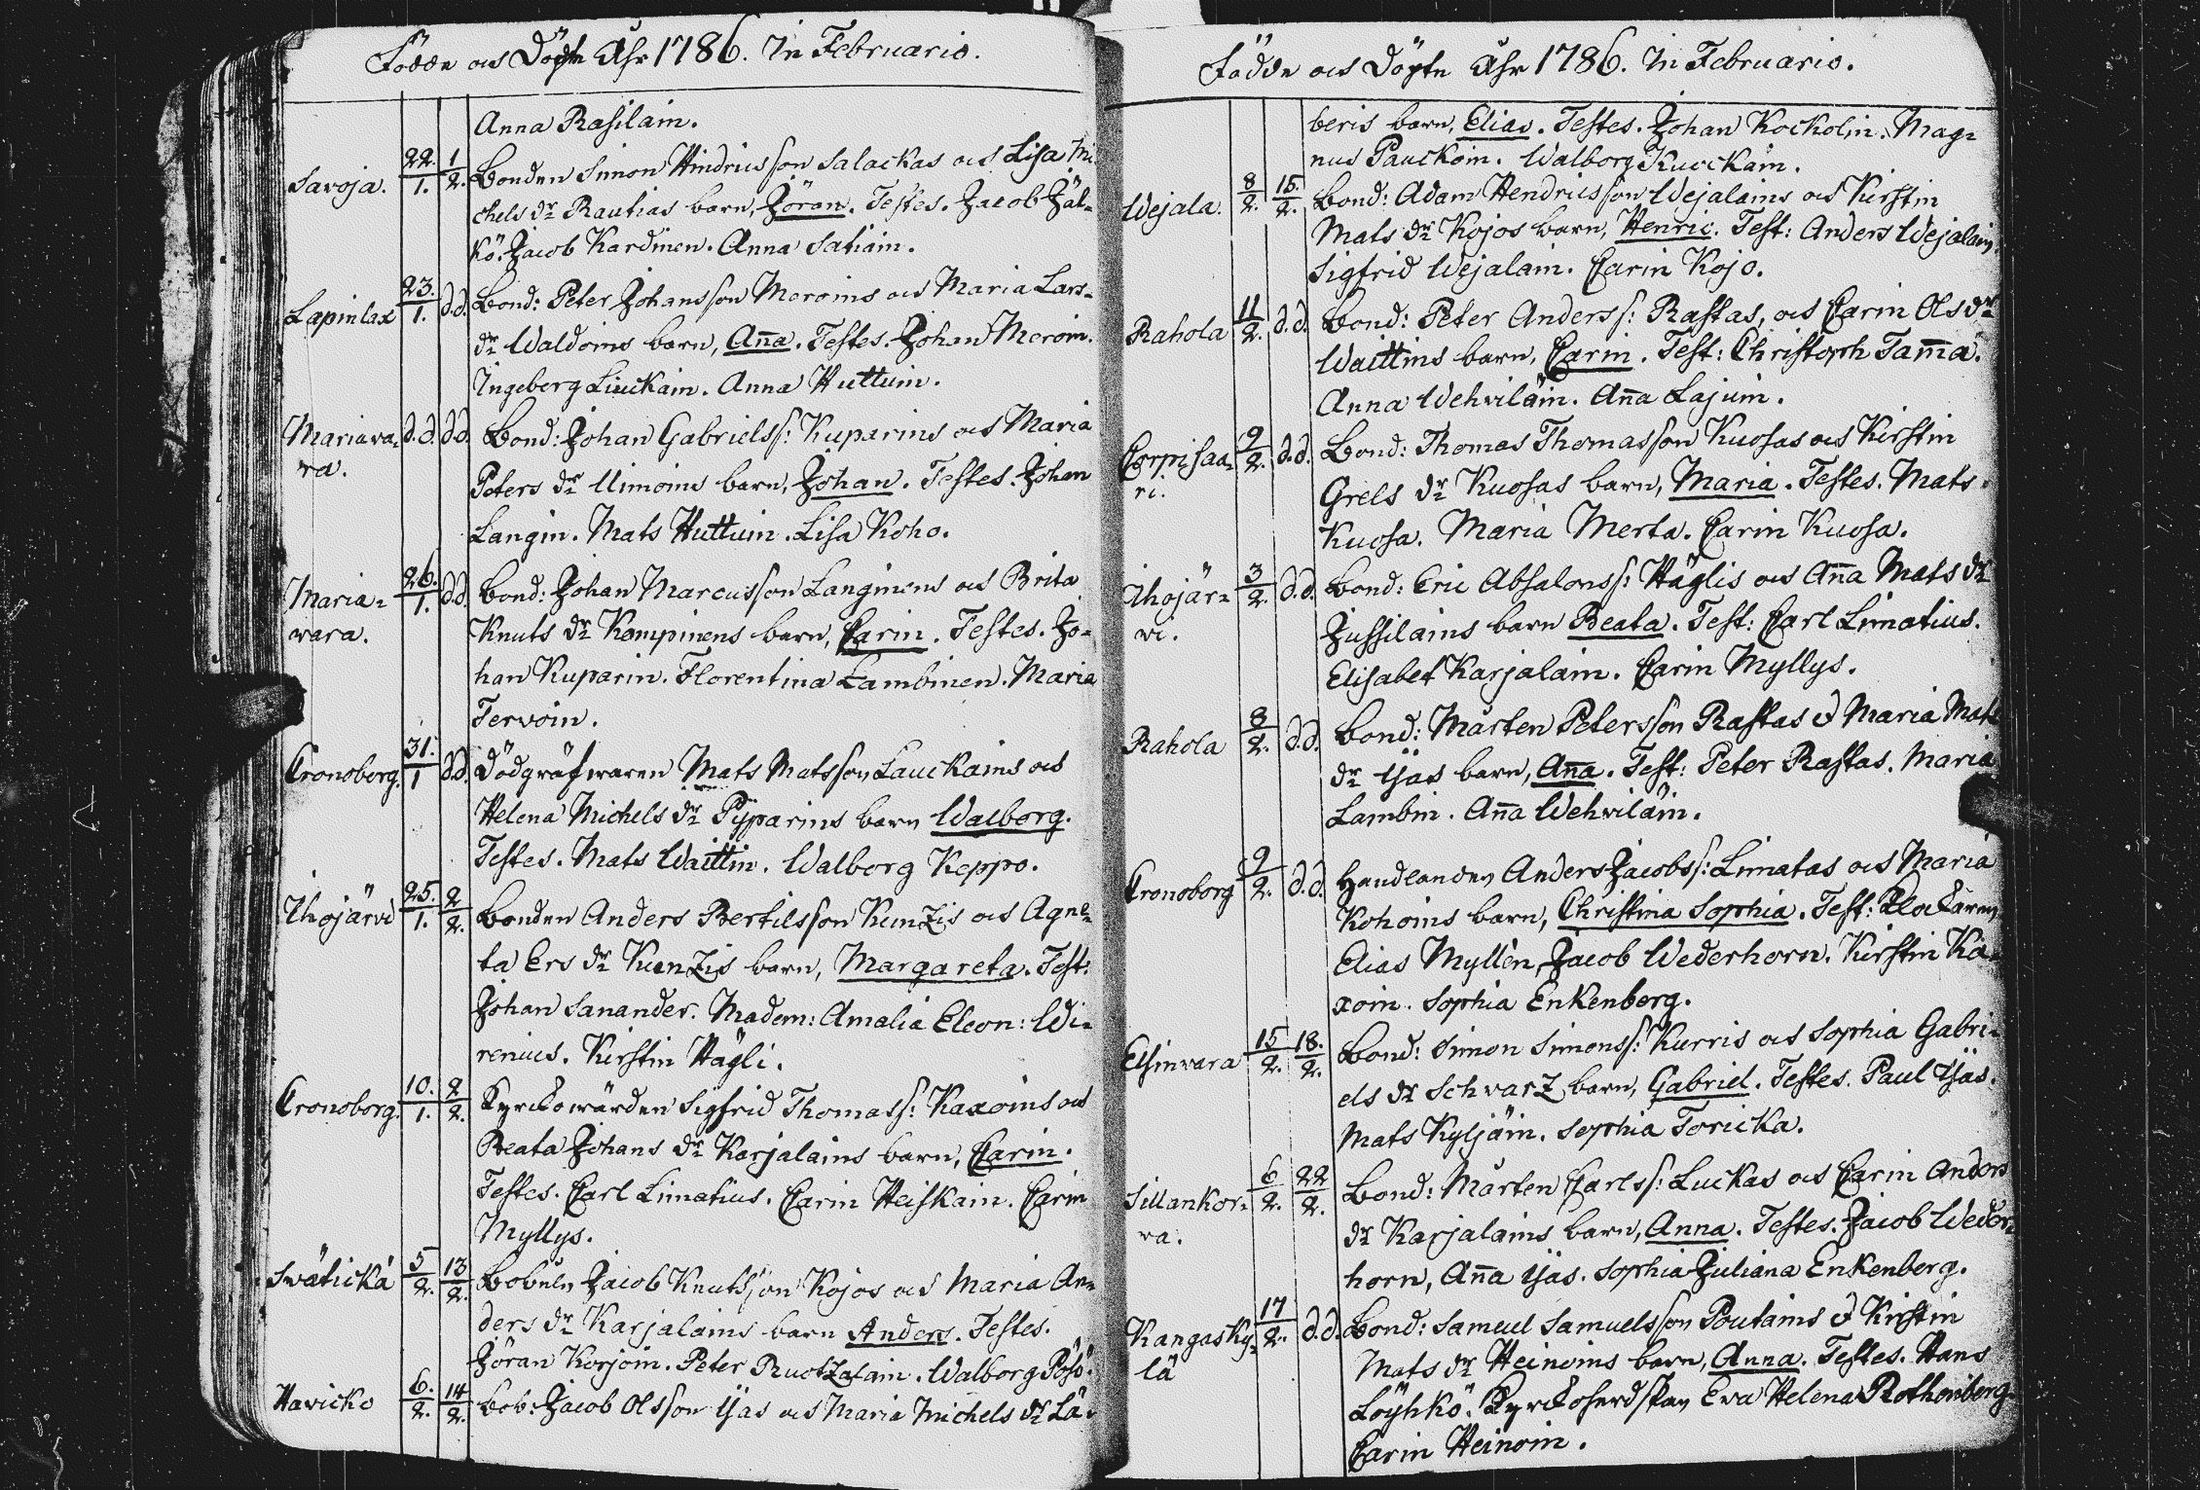 Födde och Döpte Åhr 1786. In Februario.
Anna Rasilain.
Savoja. 22./1. 1/2. Bonden Simon Hindricsson Salackas och Lisa Mi
chels dr Rautias barn, Jöran. Testes. Jacob Jäl=
kö. Jacob Kardinen. Anna Satiain.
Lapinlax 23./1. d.d. Bond: Peter Johansson Meroins och Maria Lars=
dr Waldoins barn, Aña. Testes. Johan Meroin.
Ingeborg Liuckain. Anna Huttuin.
Mariava= d.d. d.d. Bond: Johan Gabrielss: Kuparins och Maria
ra. Peters dr Uimoins barn, Johan. Testes. Johan
Langin. Mats Huttuin. Lisa Koho.
Maria= 26./1. d.d. Bond: Johan Marcusson Langinens och Brita
wara. Knuts dr Kompinens barn, Carin. Testes. Jo=
han Kuparin. Florentina Lambinen. Maria
Tervoin.
Cronoborg. 31./1 d.d. Dödgräfwaren Mats Matsson Lauckains och
Helena Michels dr Pyparins barn Walborg.
Testes. Mats Waittin. Walborg Keppo.
Ihojärvi 25./1. 2/2. Bonden Anders Bertilsson Kunzis och Agne=
ta Ers dr Kunzis barn, Margareta. Test:
Johan Sanander. Madem: Amalia Eleon: Wi=
renius. Kirstin Hägli.
Cronoborg. 10./1. 2/2. Kyrckowärden Sigfrid Thomass: Kaxoins och
Beata Johans dr Karjalains barn, Carin.
Testes. Carl Limatius. Carin Heiskain. Carin
Myllys.
Swätickä 5/2. 13/2. Bobulen Jacob Knutsson Kojos och Maria An=
ders dr Karjalains barn Anders. Testes.
Jöran Korjoin. Peter Ruotzalain. Walborg Pösö.
Havicko 6./2. 14/2. bob: Jacob Olsson Ijas och Maria Michels dr Lä=
Födde och Döpte Åhr 1786. In Februario.
beris barn, Elias. Testes. Johan Kockolin. Mag=
nus Pauckoin. Walborg Kuickain.
Wejala. 8/2. 15./2. Bond: Adam Hendricsson Wejalains och Kirstin
Mats dr Kojos barn, Henric. Test: Anders Wejalain,
Sigfrid Wejalain. Carin Kojo.
Rahola 11/2. d.d. Bond: Peter Anderss: Rastas, och Carin Ols dr
Waittins barn, Carin. Test: Christoph Tam̄a.
Anna Wehviläin. Aña Lajuin.
Corpisaa= 9/2. d.d. Bond: Thomas Thomasson Kuosas och Kirstin
ri. Grels dr Kuosas barn, Maria. Testes. Mats
Kuosa. Maria Merta. Carin Kuosa.
Ihojär= 3/2. d.d. Bond: Eric Absalonss: Häglis och Aña Mats dr
vi. Jussilains barn Beata. Test: Carl Limatius.
Elisabet Karjalain. Carin Myllys.
Rahola 8/2. d.d. Bond: Mårten Petersson Rastas & Maria Mats
dr Ijas barn, Aña. Test: Peter Rastas. Maria
Lambin. Aña Wehviläin.
Cronoborg 9/2. d.d. Handlanden Anders Jacobss: Limatas och Maria
Kohoins barn, Christina Sophia. Test: Klockaren
Elias Myllèn, Jacob Wederhorn. Kirstin Ka=
xoin. Sophia Enkenberg.
Elsinvara 15/2. 18./2. Bond: Simon Simonss: Kurris och Sophia Gabri=
els dr Schvarz barn, Gabriel. Testes. Paul Ijäs.
Mats Kyljäin. Sophia Toricka.
Sillankor= 6/2. 22/2. Bond: Mårten Carlss: Luckas och Carin Anders
va. dr Karjalains barn, Anna. Testes. Jacob Weder=
horn, Aña Ijäs. Sophia Juliana Enkenberg.
Kangasky= 17/2. d.d. Bond: Samuel Samuelsson Poutains & Kirstin
lä Mats dr Heinoins barn, Anna. Testes. Hans
Löyhkö. Kyrckoherdskan Eva Helena Rothenberg
Carin Heinoin.